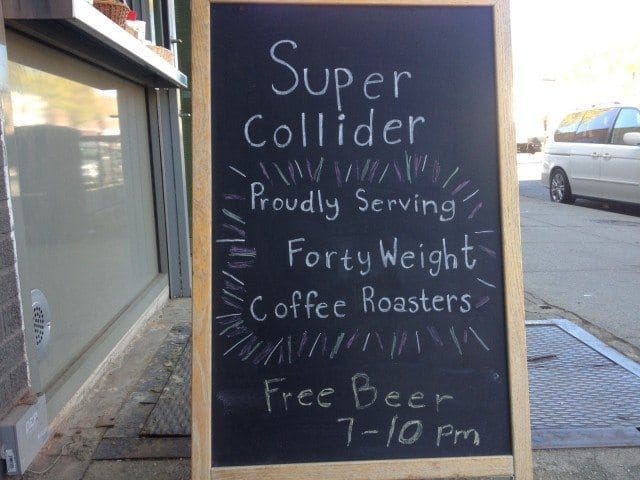 Super
Collider
Proudly Serving
Forty Weight
Coffee Roasters
Free Beer
7-10 pm